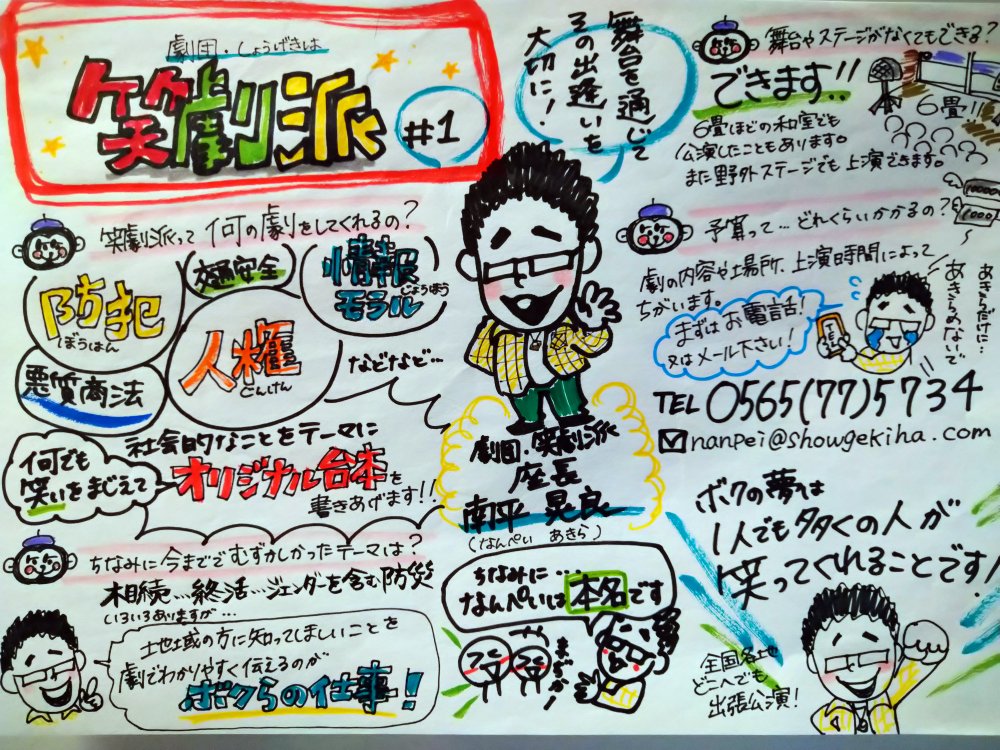 劇団・しょうげきは
笑劇派
#1
舞台を通じて
その出逢いを
大切に!
舞台やステージがなくてもできる?
できます!!
6畳ほどの和室でも
公演したこともあります。
また野外ステージでも上演できます。
6畳!!
笑劇派って何の劇をしてくれるの?
防犯
ぼうはん
交通安全
情報
じょうほう
モラル
人権
じんけん
悪質商法
などなど…
何でも
笑いをまじえて
社会的なことをテーマに
オリジナル台本を
書きあげます!!
劇団・笑劇派
座長
南平 晃良
(なんぺい あきら)
予算って…どれくらいかかるの?
劇の内容や場所、上演時間によって
ちがいます。
まずはお電話!
又はメール下さい!
あきらだけに…
あきらめないで
TEL 0565(77)5734
nanpei@showgekiha.com
ちなみに今までむずかしかったテーマは?
相続…終活…ジェンダーを含む防災
いろいろありますが…
土地土地域の方に知ってほしいことを
劇でわかりやすく伝えるのが
ボクらの仕事!
ちなみに…
なんぺいは本名です
まぢか!
ボクの夢は
1人でも多くの人が
笑ってくれることです!
全国各地
どこへでも
出張公演!